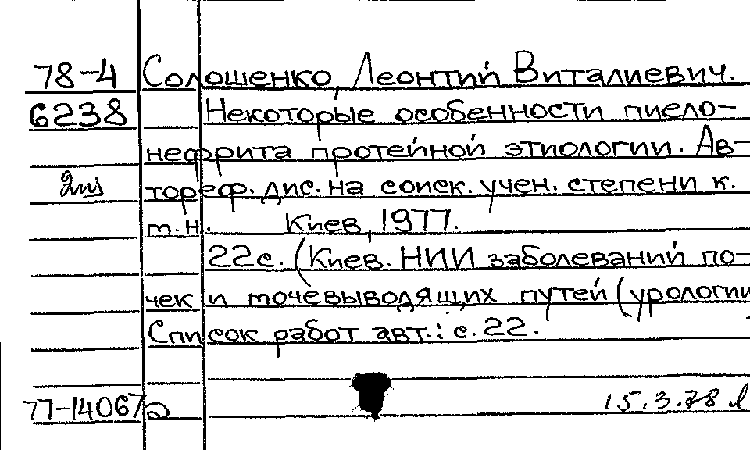 78-4 Солошенко, Леонтий Виталиевич.
6238 Некоторые особенности пиело-
нефрита протейной этиологии. Ав-
тореф. дис. на соиск. учен. степени к.
м.н. Киев, 1977.
22с. (Киев. НИИ заболеваний по-
чек и мочевыводящих путей (урологии
Список работ авт.: с. 22.
77-14067 15.3.78